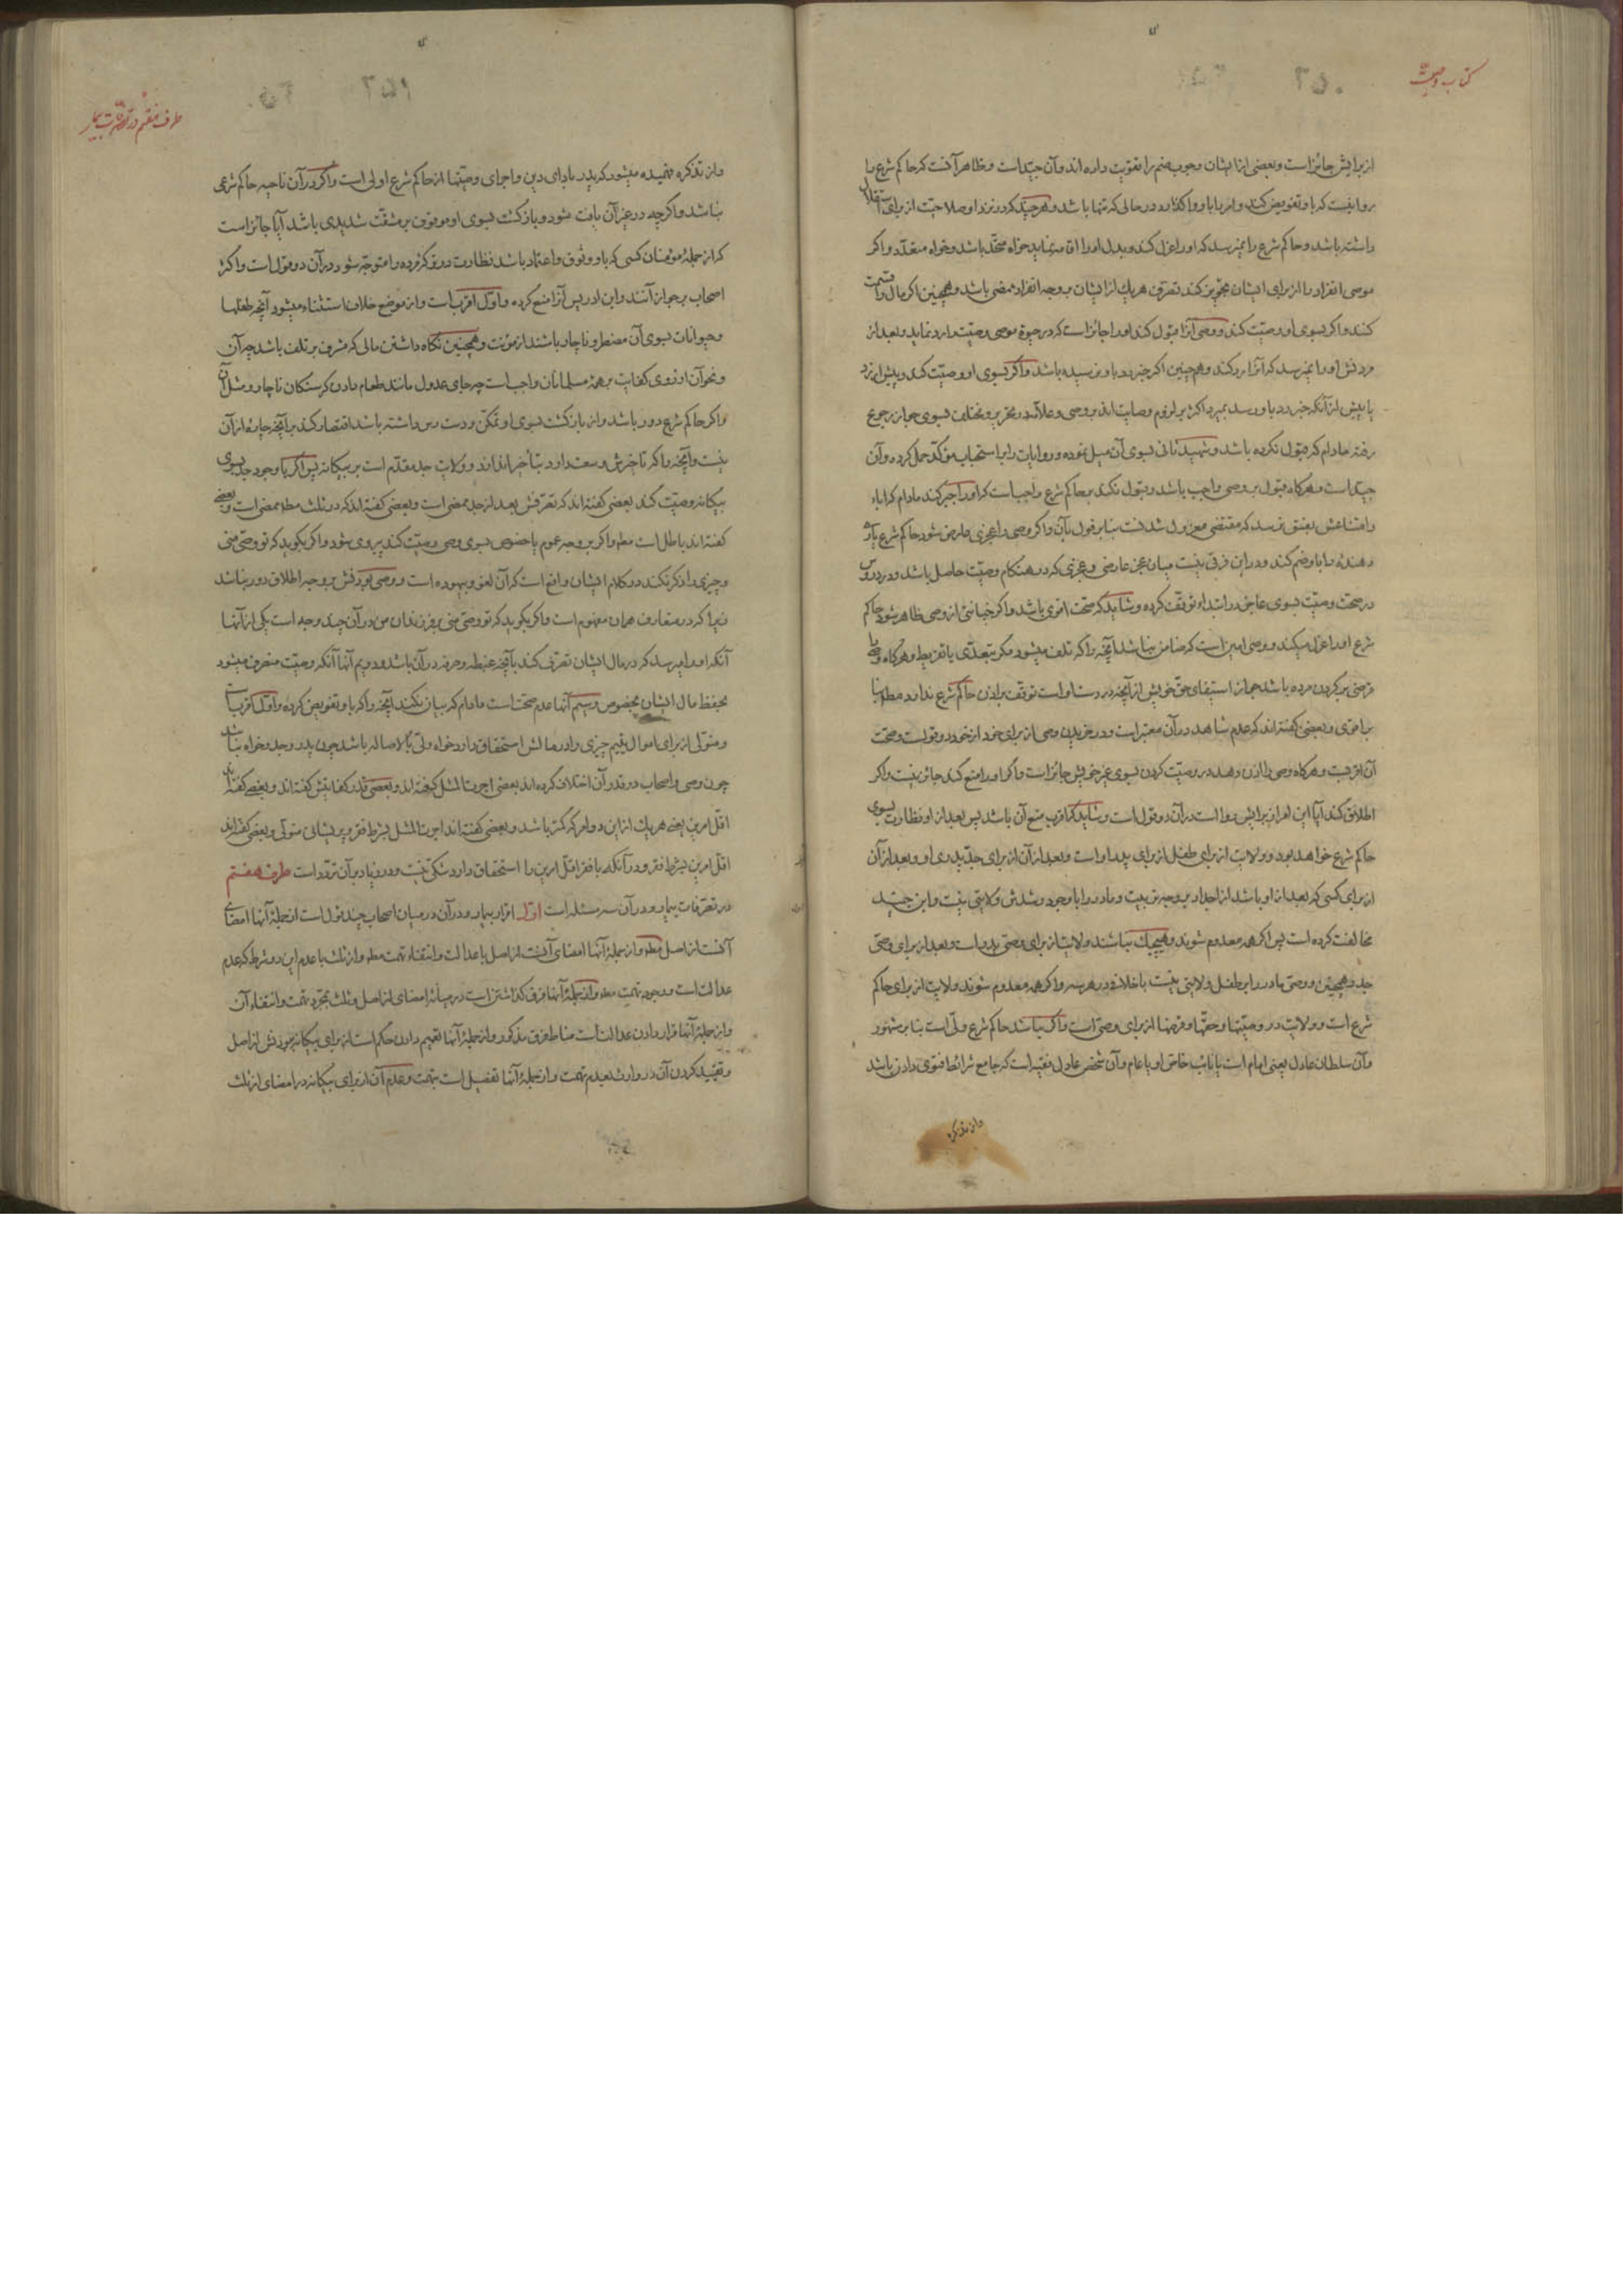 کتاب وصیت
از برایش جائز است و بعضی از ایشان وجوب ضم را تقویت داده اند و آن جید است و ظاهر آنست که حاکم شرع را
روا نیست که باو تفویض کند و امر باو واگذارد در حالی که تنها باشد و هرچند که در نزد او صلاحیت از برای استقلال
داشته باشد و حاکم شرع را نمیرسد که او را عزل کند و بدل او را اقامه نماید خواه متحد باشد و خواه متعدد و اگر
موصی انفراد را از برای ایشان تجویز کند تصرف هر یک از ایشان بر وجه انفراد ممضی باشد و همچنین اگر مال را قسمت
کنند و اگر بسوی او وصیت کند و وصی آنرا قبول کند او را جائز است که در حیوة موصی وصیت را رد نماید و بعد از
مردنش او را نمیرسد که آنرا رد کند و همچنین اگر خبر رد باو نرسیده باشد و اگر بسوی او وصیت کند و پیش از رد
یا پیش از آنکه خبر رد باو رسد بمیرد اکثر بر لزوم وصایت اند بر وصی و علامه در تحریر و مختلف بسوی جواز رجوع
رفته مادام که قبول نکرده باشد و شهید ثانی بسوی آن میل نموده و روایات را بر استحباب مؤکد حمل کرده و آن
جید است و هرگاه قبول بر وصی واجب باشد و قبول نکند بر حاکم شرع واجب است که او را جبر کند مادام که اباء
و امتناعش بفسق نرسد که مقتضی معزول شدنست بنابر قول بآن و اگر وصی را عجزی عارض شود حاکم شرع یاری
دهنده را باو ضم کند و در این فرقی نیست میان عجز عارضی و عجزی که در هنگام وصیت حاصل باشد و در دروس
در صحت وصیت بسوی عاجز در ابتداء توقف کرده و شاید که صحت اقوی باشد و اگر خیانتی از وصی ظاهر شود حاکم
شرع او را عزل میکند و وصی امین است که ضامن نباشد آنچه را که تلف میشود مگر بتعدی یا تفریط و هرگاه وصی را
قرضی بر گردن مرده باشد جواز استیفای حق خویش از آنچه در دست اوست توقف بر اذن حاکم شرع ندارد مطلقا بنا
بر اقوی و بعضی گفته اند که عدم شاهد در آن معتبر است و در خریدن وصی از برای خود از خود دو قولست و صحت
آن اقربست و هرگاه وصی را اذن دهد در وصیت کردن بسوی غیر خویش جائز است و اگر او را منع کند جائز نیست و اگر
اطلاق کند آیا این امر از برایش روا است در آن دو قول است و شاید که اقرب منع آن باشد پس بعد از او نظارت بسوی
حاکم شرع خواهد بود و ولایت از برای طفل از برای پدر او است و بعد از آن از برای جد پدری او و بعد از آن
از برای کسی که بعد از او باشد از اجداد بر وجه ترتیب و مادر را با وجود رشدش ولایتی نیست و ابن جنید
مخالفت کرده است پس اگر همه معدوم شوند و هیچیک نباشند ولایت از برای وصی پدر است و بعد از برای وصی
جد و همچنین و وصی مادر را بر طفل ولایتی نیست باخلاف در هر سه و اگر همه معدوم شوند ولایت از برای حاکم
شرع است و ولایت در وصیتها و حقها و قرضها از برای وصی است و اگر نباشد حاکم شرع ولی است بنا بر مشهور
و آن سلطان عادل یعنی امام است یا نائب خاص او یا عام و آن شخص عادل فقیه است که جامع شرائط فتوی دادن باشد
و از تذکره
طرف هفتم در تصرفات بیمار
و از تذکره فهمیده میشود که پدر بادای دین و اجرای وصیتها از حاکم شرع اولی است و اگر در آن ناحیه حاکم شرعی
نباشد و اگرچه در غیر آن یافت شود و بازگشت بسوی او موقوف بر مشقت شدیدی باشد آیا جائز است
که از جمله مؤمنان کسی که باو وثوق و اعتماد باشد نظارت در ترکه مرده را متوجه شود در آن دو قول است و اکثر
اصحاب بر جواز آنند و ابن ادریس آنرا منع کرده و اول اقرب است و از موضع خلاف استثناء میشود آنچه طفلها
و حیوانات بسوی آن مضطر و ناچار باشند از مؤنت و همچنین نگاه داشتن مالی که مشرف بر تلف باشد چه آن
و نحو آن از روی کفایت بر همه مسلمانان واجب است چه جای عدول مانند طعام دادن گرسنگان ناچار و مثل آن
و اگر حاکم شرع دور باشد و از بازگشت بسوی او تمکن و دست رس داشته باشد اقتصار کند بر آنچه چاره از آن
نیست و آنچه را که تأخیرش وسعت دارد بتأخیر اندازد و ولایت جد مقدم است بر بیگانه پس اگر با وجود جد بسوی
بیگانه وصیت کند بعضی گفته اند که تصرفش بعد از جد ممضی است و بعضی گفته اند که در ثلث مطلقا ممضی است و بعضی
گفته اند باطل است مطلقا و اگر بر وجه عموم یا خصوص بسوی وصی وصیت کند پیروی شود و اگر بگوید که تو وصی منی
و چیزی را ذکر نکند در کلام ایشان واقع است که آن لغو و بیهوده است و وصی او تصرفش بر وجه اطلاق دور نباشد
زیرا که در متعارف همان مفهوم است و اگر بگوید که تو وصی منی بر فرزندان من در آن چند وجه است یکی از آنها
آنکه او را میرسد که در مال ایشان تصرفی کند بآنچه غبطه و صرفه در آن باشد و دویم آنها آنکه وصیت منصرف میشود
بحفظ مال ایشان بخصوص و سیم آنها عدم صحت است مادام که بیان نکند آنچه را که باو تفویض کرده و اول اقرب است
و متولی از برای اموال یتیم چیزی را در مالش استحقاق دارد خواه ولی بالاصاله باشد چون پدر و جد و خواه نباشد
چون وصی و اصحاب در قدر آن اختلاف کرده اند بعضی اجرت المثل گفته اند و بعضی قدر کفایتش گفته اند و بعضی گفته اند
اقل امرین یعنی هر یک از این دو امر که کمتر باشد و بعضی گفته اند اجرت المثل بشرط فقر و پریشانی متولی و بعضی گفته اند
اقل امرین بشرط فقر و در آنکه با فقر اقل امرین را استحقاق دارد شکی نیست و در زیاد بر آن تردد است طرف هفتم
در تصرفات بیمار و در آن سه مسئله است اول اقرار بیمار و در آن در میان اصحاب چند قول است از جمله آنها امضای
آنست از اصل مطلقا و از جمله آنها امضای آنست از اصل با عدالت و انتفاء تهمت مطلقا و از ثلث با عدم این دو شرط که عدم
عدالت است و وجود تهمت مطلقا و از جمله آنها فرق گذاشتن است در میانه امضای از اصل و ثلث بمجرد تهمت و انتفاء آن
و از جمله آنها قرار دادن عدالت است مناط فرق مذکور و از جمله آنها تعمیم دادن حکم است از برای بیگانه در بودنش از اصل
و تقیید کردن آن در وارث بعدم تهمت و از جمله آنها تفصیل است بتهمت و عدم آن از برای بیگانه در امضای از ثلث